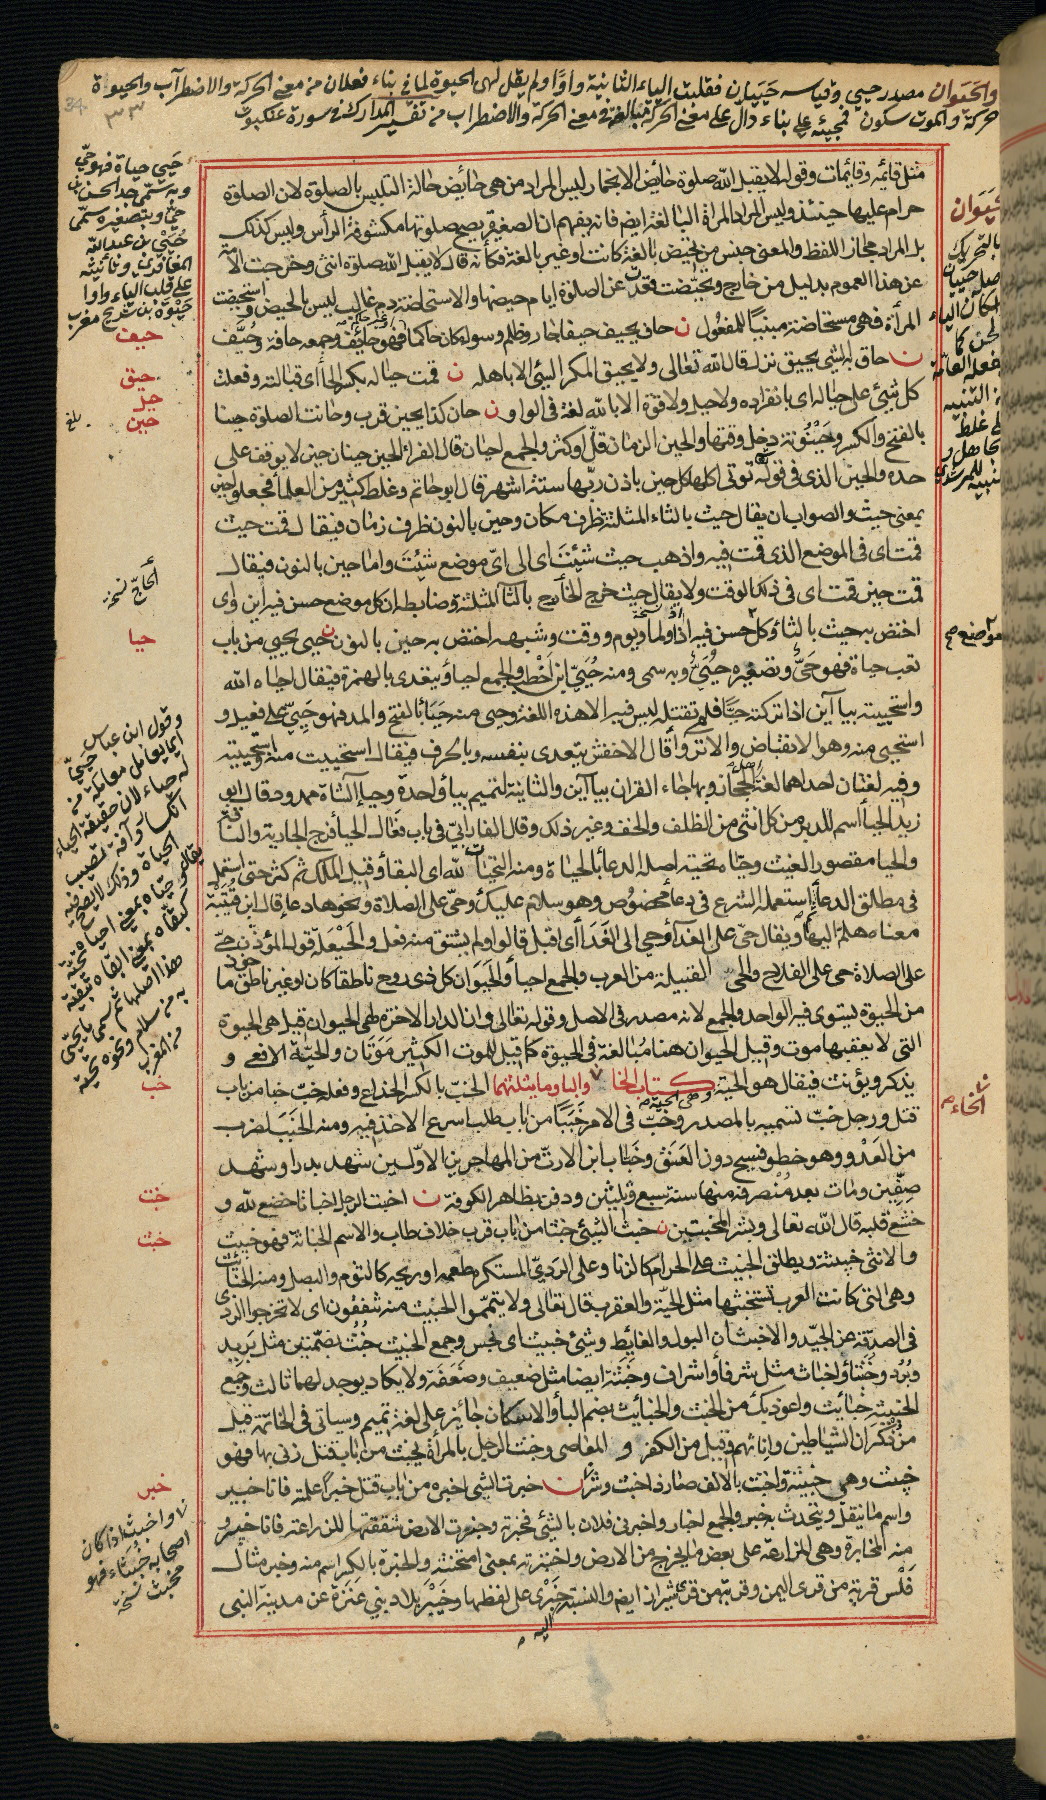 والحيوان مصدر حيي وقياسه حييان فقلبت الياء الثانية واوا ولم يقل لهى الحيوة لما في بناء فعلان من معنى الحركة والاضطراب والحيوة
حركة والموت سكون فمجيئه على بناء دال على معنى الحركة مبالغة في معنى الحركة والاضطراب من تفسير المدارك في سورة عنكبوت
34
٣٣
مثل قايمه وقايمات وقوله لا يقبل الله صلوة حائض الا بخمار ليس المراد من هى حائض حالة التلبس بالصلوة لان الصلوة
حرام عليها حينئذ وليس المراد المراة البالغة ايضا فانه يفهم ان الصغيرة يصح صلوتها مكشوفة الرأس وليس كذلك
بل المراد مجاز اللفظ والمعنى جنس من يحيض بالغة كانت او غير بالغة فكأنه قال لا يقبل الله صلوة انثى وخرجت الامة
عن هذا العموم بدليل من خارج وتحيضت قعدت عن الصلوة ايام حيضها والاستحاضة دم غالب ليس بالحيض واستحيضت
المرأة فهى مستحاضة مبنيا للمفعول ن حاف يحيف حيفا جار وظلم وسواء كان حاكما او غير حاكم فهو حائف وجمعه حافة وحيّف
ن حاق به الشئ يحيق نزل قال الله تعالى ولا يحيق المكر السئ الا باهله ن قمت حياله بكسر الحا اى قبالته وفعلت
كل شئ على حياله اى بانفراده ولا حيل ولا قوة الا بالله لغة فى الواو ن حان كذا يحين قرب وحانت الصلوة حينا
بالفتح والكسر وحينونة دخل وقتها والحين الزمان قلّ او كثر والجمع احيان قال الفراء الحين حينان حين لا يوقف على
حده والحين الذى فى قوله توتى اكلها كل حين باذن ربها ستة اشهر قال ابو حاتم وغلط كثير من العلما فجعلو حين
بمعنى حيث والصواب ان يقال حيث بالثاء المثلثة ظرف مكان وحين بالنون ظرف زمان فيقال قمت حيث
قمت اى فى الموضع الذى قمت فيه واذهب حيث شئت اى الى اىّ موضع شئت واما حين بالنون فيقال
قمت حين قمت اى فى ذلك الوقت ولا يقال حيث خرج الحاج بالثا المثلثة وضابطه ان كل موضع حسن فيه اين واى
اختص به حيث بالثا وكل حسن فيه اذا ولما ويوم ووقت وشبهه اختص به حين بالنون ن حيى يحيى من باب
تعب حياة فهو حىّ وتصغيره حُيَىّ وبه سمى ومنه حيى ابن اخطب والجمع احيا ويتعدى بالهمزة فيقال احياه الله
واستحييته بيائين اذا تركته حيّا فلم تقتله ليس فيه الا هذه اللغة وحيى منه حياء بالفتح والمد فهو حيىّ على فعيل و
استحيى منه وهو الانقباض والانزواء قال الاخفش يتعدى بنفسه وبالحرف فيقال استحييت منه واستحييته
وفيه لغتان احداهما لغة اهل الحجاز وبها جاء القران بيائين والثانية لتميم بياء واحدة وحياء الشاة ممدود قال ابو
زيد الحيا اسم للدبر من كل انثى من الظلف والخف وغير ذلك وقال الفارابى فى باب فعال الحيا فرج الجارية والناقة
والحيا مقصور الغيث وحيّاه تحية اصله الدعا بالحياة ومنه التحيات لله اى البقا وقيل الملك ثم كثر حتى استعمل
فى مطلق الدعا ثم استعمله الشرع فى دعا مخصوص وهو سلام عليك وحى على الصلاة ونحوها دعا قال ابن قتيبة
معناه هلم اليها ويقال حى على الغدا وحى الى الغدا اى اقبل قالوا ولم يشتق منه فعل والحيعلة قول المؤذن حى
على الصلاة حى على الفلاح والحى القبيلة من العرب والجمع احيا والحيوان كل ذى روح ناطقا كان او غير ناطق ماخوذ
من الحيوة يستوى فيه الواحد والجمع لانه مصدر فى الاصل وقوله تعالى وان الدار الاخرة لهى الحيوان قيل هى الحيوة
التى لا يعقبها موت وقيل الحيوان هنا مبالغة فى الحيوة كما قيل للموت الكثير موتان والحيّة الافعى و
يذكر ويؤنث فيقال هو الحية وهى الحية كتاب الخا والبا وما يثلثهما الخبّ بالكسر الخداع وفعله خبّ خبا من باب
قتل ورجل خبّ تسميه بالمصدر وخبّ فى الامر خببا من باب طلب اسرع الاخذ فيه ومنه الخبب لضرب
من العَدْو وهو خطو فسيح دون العَنَق وخباب ابن الارت من المهاجرين الاوّلين شهد بدرا وشهد
صفّين ومات بعد منصرفه منها سنة سبع وثلثين ودفن بظاهر الكوفة ن اخبت الرجل اخباتا خضع لله و
خشع قلبه قال الله تعالى وبشر المخبتين ن خبث الشئ خبثا من باب قرب خلاف طاب والاسم الخباثة فهو خبيث
والانثى خبيثة ويطلق الخبيث على الحرام كالزنا وعلى الردىّ المستكره طعمه او ريحه كالثوم والبصل ومنه الخبائث
وهى التى كانت العرب تستخبثها مثل الحيّة والعقرب قال تعالى ولا يتمموا الخبيث منه تنفقون اى لا تخرجوا الردى
فى الصدقة عن الجيّد والاخبثان البول والغائط وشئ خبيث اى نجس وجمع الخبيث خُبُث بضمّتين مثل بريد
وبُرُد وخبثاء واخباث مثل شرفا واشراف وخبثة ايضا مثل ضعيف وضعفة ولا يكاد يوجد لهما ثالث وجمع
الخبيثة خبائث واعوذ بك من الخبث والخبائث بضم البا والاسكان جائز على لغة تميم وسياتى فى الخاتمة قيل
من ذكران الشياطين واناثهم وقيل من الكفر و المعاصى وخبث الرجل بالمرأة يخبث من باب قتل زنى بها فهو
خبيث وهى خبيثة واخبث بالالف صار ذا خبث وشر ن خبرت الشئ اخبره من باب قتل خبرا علمته فانا خبير
واسم ما ينقل ويتحدث به خبر والجمع اخبار واخبرنى فلان بالشئ فخبرته وخبرت الارض شققتها للزراعة فانا خبير و
منه المخابرة وهى المزارعة على بعض ما يخرج من الارض واختبرته بمعنى امتحنته والخبرة بالكسر اسم منه وخبر مثال
فَلْس قرية من قرى اليمن وقرية من قرى شيراز ايضا والنسبة خَبْرى على لفظها وخَيْبر بلاد بنى عَنَزة عن مدينة النبى
اليه
حيوان
بالتحريك
موضع صح
الخاء
حيي حياة فهو حيّ
وبه سمّي جد الحسن بن
حيّ وبتصغيره سمّي
حُيَيّ بن عبد الله
المعافري وتأنيثه
على قلب الياء واوا
حَيْوة بن شريح مغرب
حيف
حيق
حيل
حين
بلغ
الحاج نسخة
حيا
وقول ابن عباس
خب
خبت
خبث
خبر
واخبث اذا كان
اصحابه خبثاء فهو
مخبث نسخة